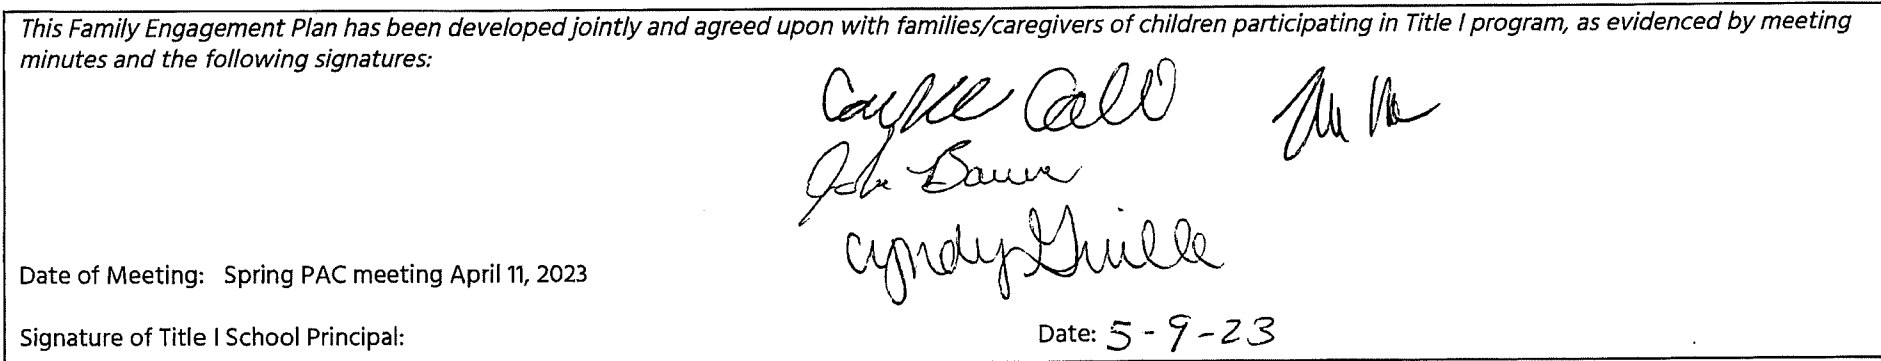 This Family Engagement Plan has been developed jointly and agreed upon with families/caregivers of children participating in Title I program, as evidenced by meeting
minutes and the following signatures:
Cyndy
Date of Meeting: Spring PAC meeting April 11, 2023
Signature of Title I School Principal:
Date: 5-9-23